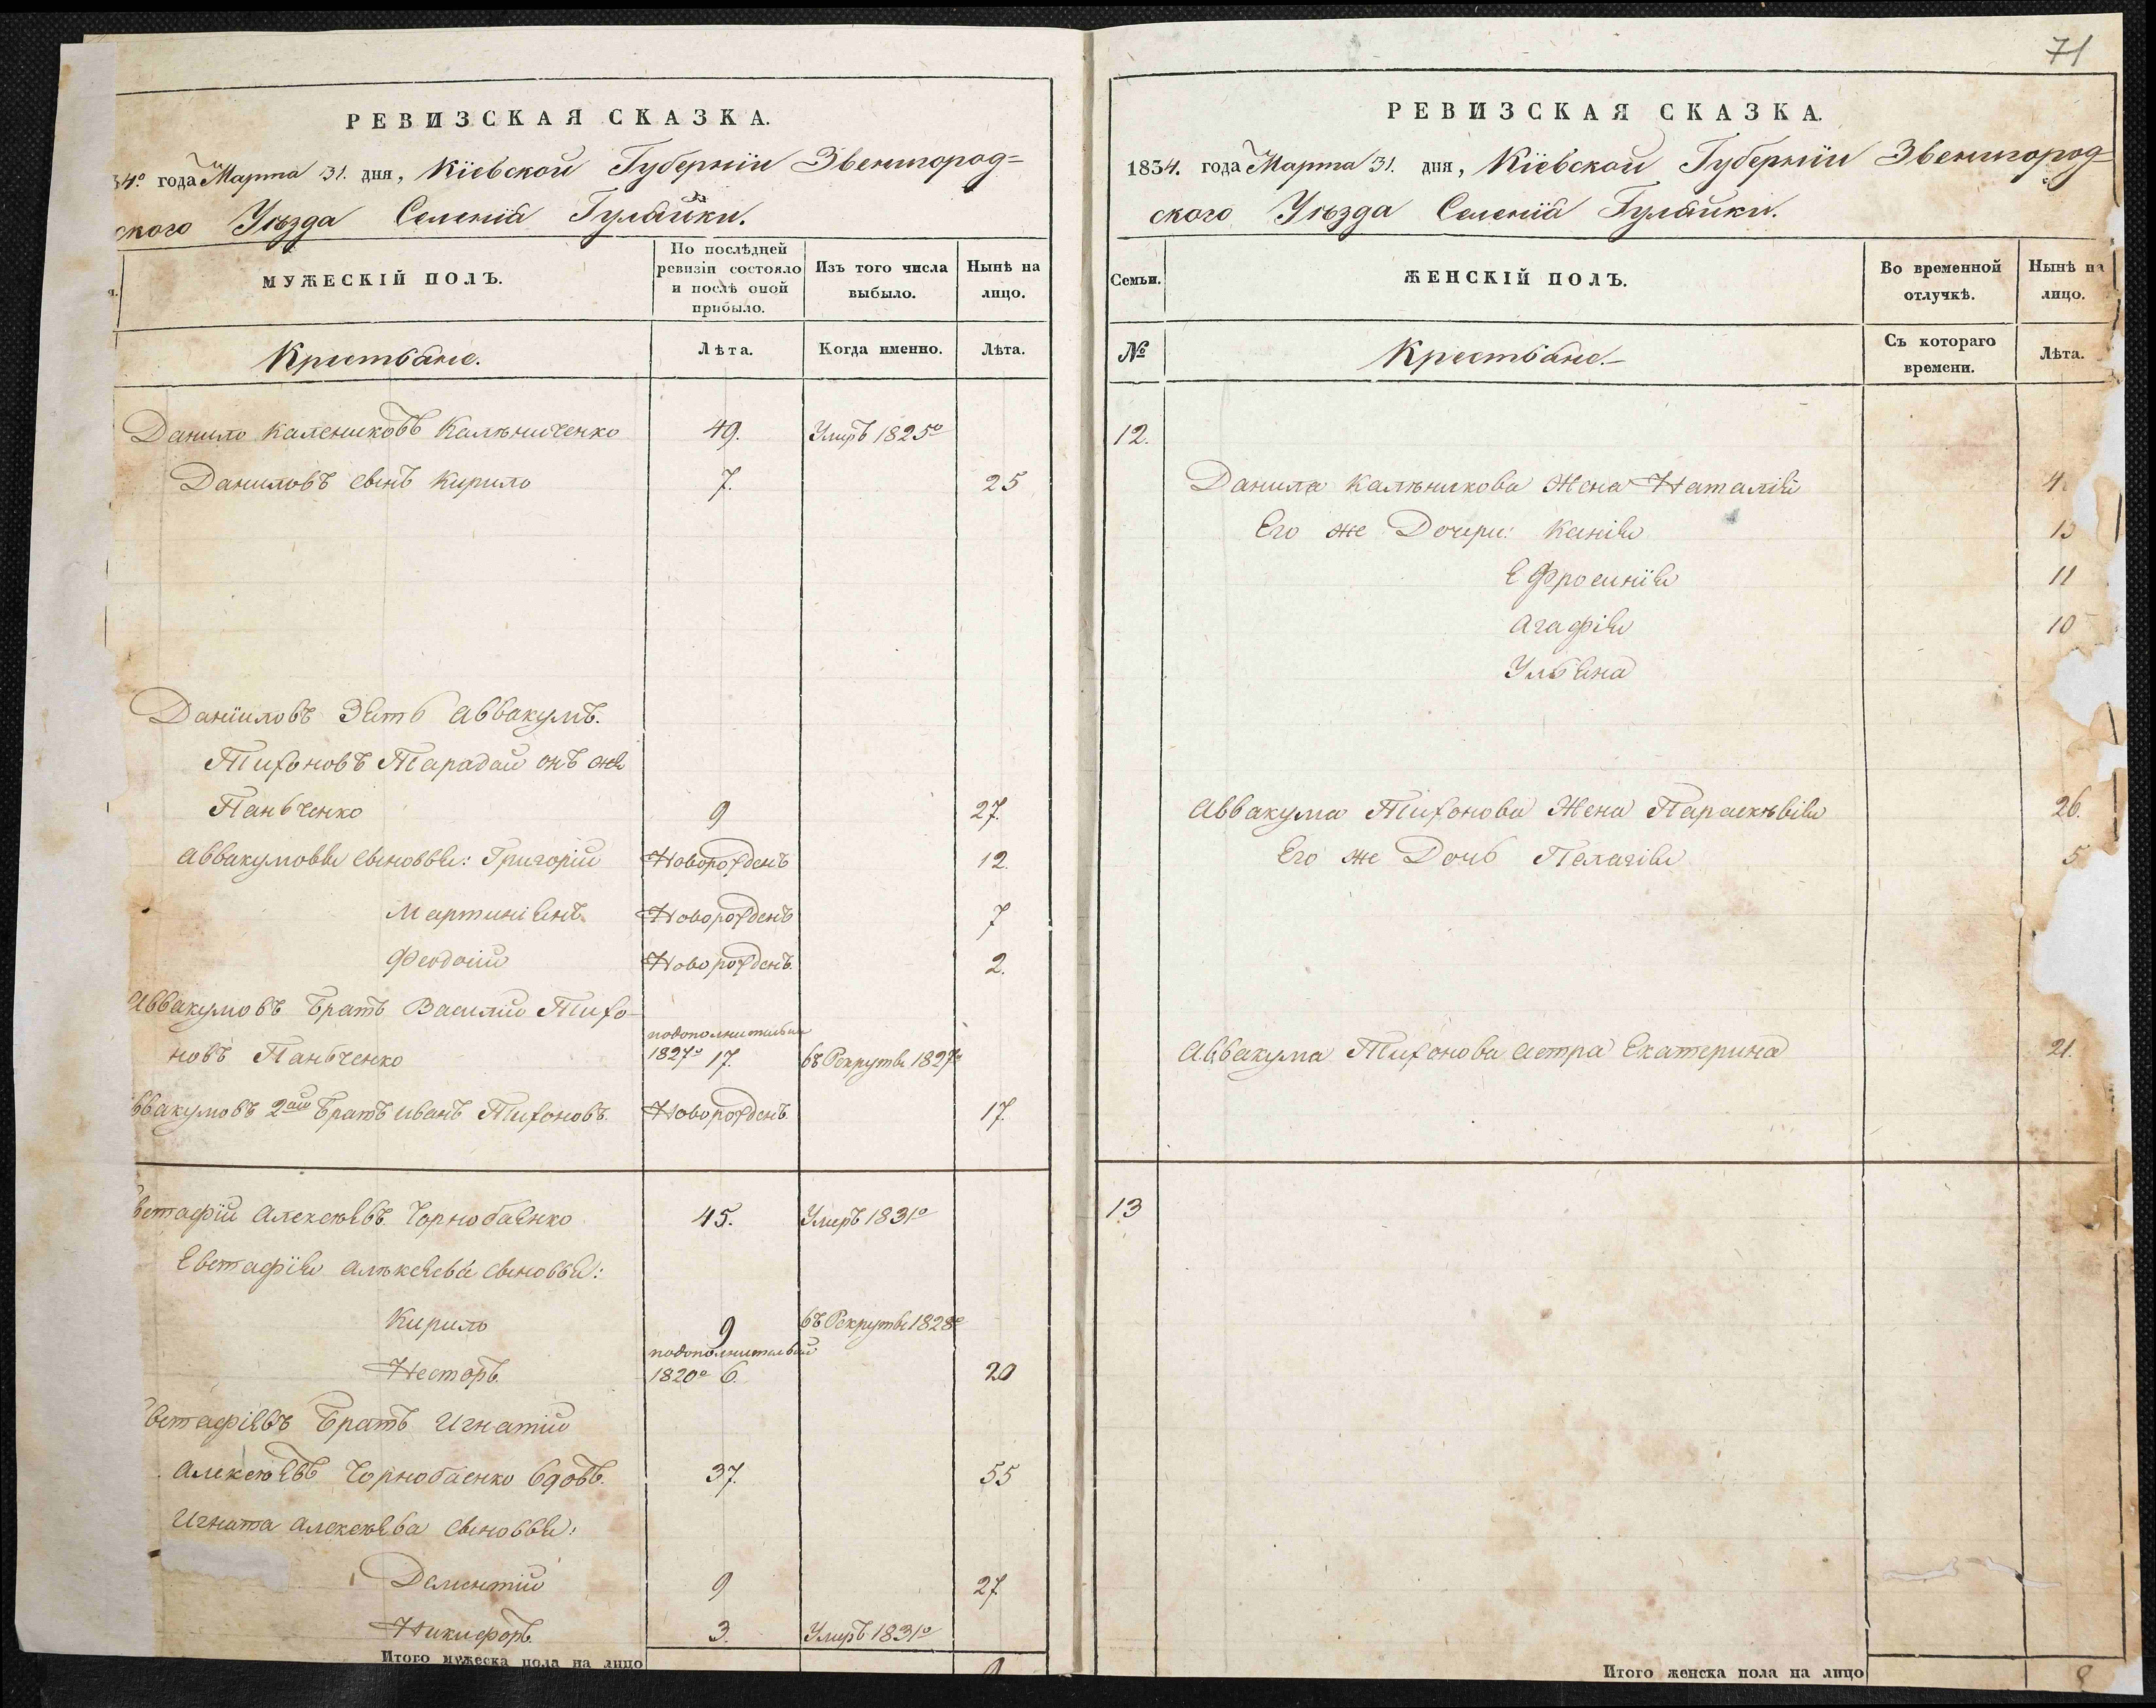 РЕВИЗСКАЯ СКАЗКА.
34го года Марта 31. дня, Кіевской Губерніи Звенигород=
ского Уѣзда Селенія Гулайки.
МУЖЕСКІЙ ПОЛЪ.
По послѣдней ревизіи состояло и послѣ оной прибыло.
Изъ того числа выбыло.
Нынѣ на лицо.
Крестьяне.
Лѣта.
Когда именно.
Лѣта.
Данило Калениковъ Калѣниченко 49. Умеръ 1825го
Даниловъ сынъ Кирило 7. 25
Даніиловъ Зять Аввакумъ
Тихоновъ Тарадай онъ же
Паньченко 9 27.
Аввакумовы сыновья: Григорій Новорожденъ 12.
Мартиніянъ Новорожденъ 7
Феодосій Новорожденъ 2.
Аввакумовъ Братъ Василій Тихо-
новъ Паньченко 1827го 17. въ Рекруты 1827го
ввакумовъ 2ой Братъ Иванъ Тихоновъ. Новорожденъ. 17.
встафій Алексѣевъ Чорнобаенко 45. Умеръ 1831го
Евстафія Алѣксеева сыновья:
Кирило 9 въ Рекруты 1828го
Несторъ 1820го 6. 20
встафіевъ Братъ Игнатій
Алексѣевъ Чорнобаенко вдовъ. 37. 55
Игната Алексѣева сыновья:
Дементій 9 27
Никифоръ. 3. Умеръ 1831го
Итого мужеска пола на лицо
71
РЕВИЗСКАЯ СКАЗКА.
1834. года Марта 31. дня, Кіевской Губерніи Звенигород-
ского Уѣзда Селенія Гулайки.
Семьи.
ЖЕНСКІЙ ПОЛЪ.
Во временной отлучкѣ.
Нынѣ на лицо.
№
Крестьяне.
Съ котораго времени.
Лѣта.
12.
Данила Калѣникова Жена Наталія 4
Его же Дочери: Ксенія
Ефросинія 11
Агафія 10
Ульяна
Аввакума Тихонова Жена Параскѣвія 26.
Его же Дочь Пелагія 5
Аввакума Тихонова сестра Екатерина 21.
13
Итого женска пола на лицо